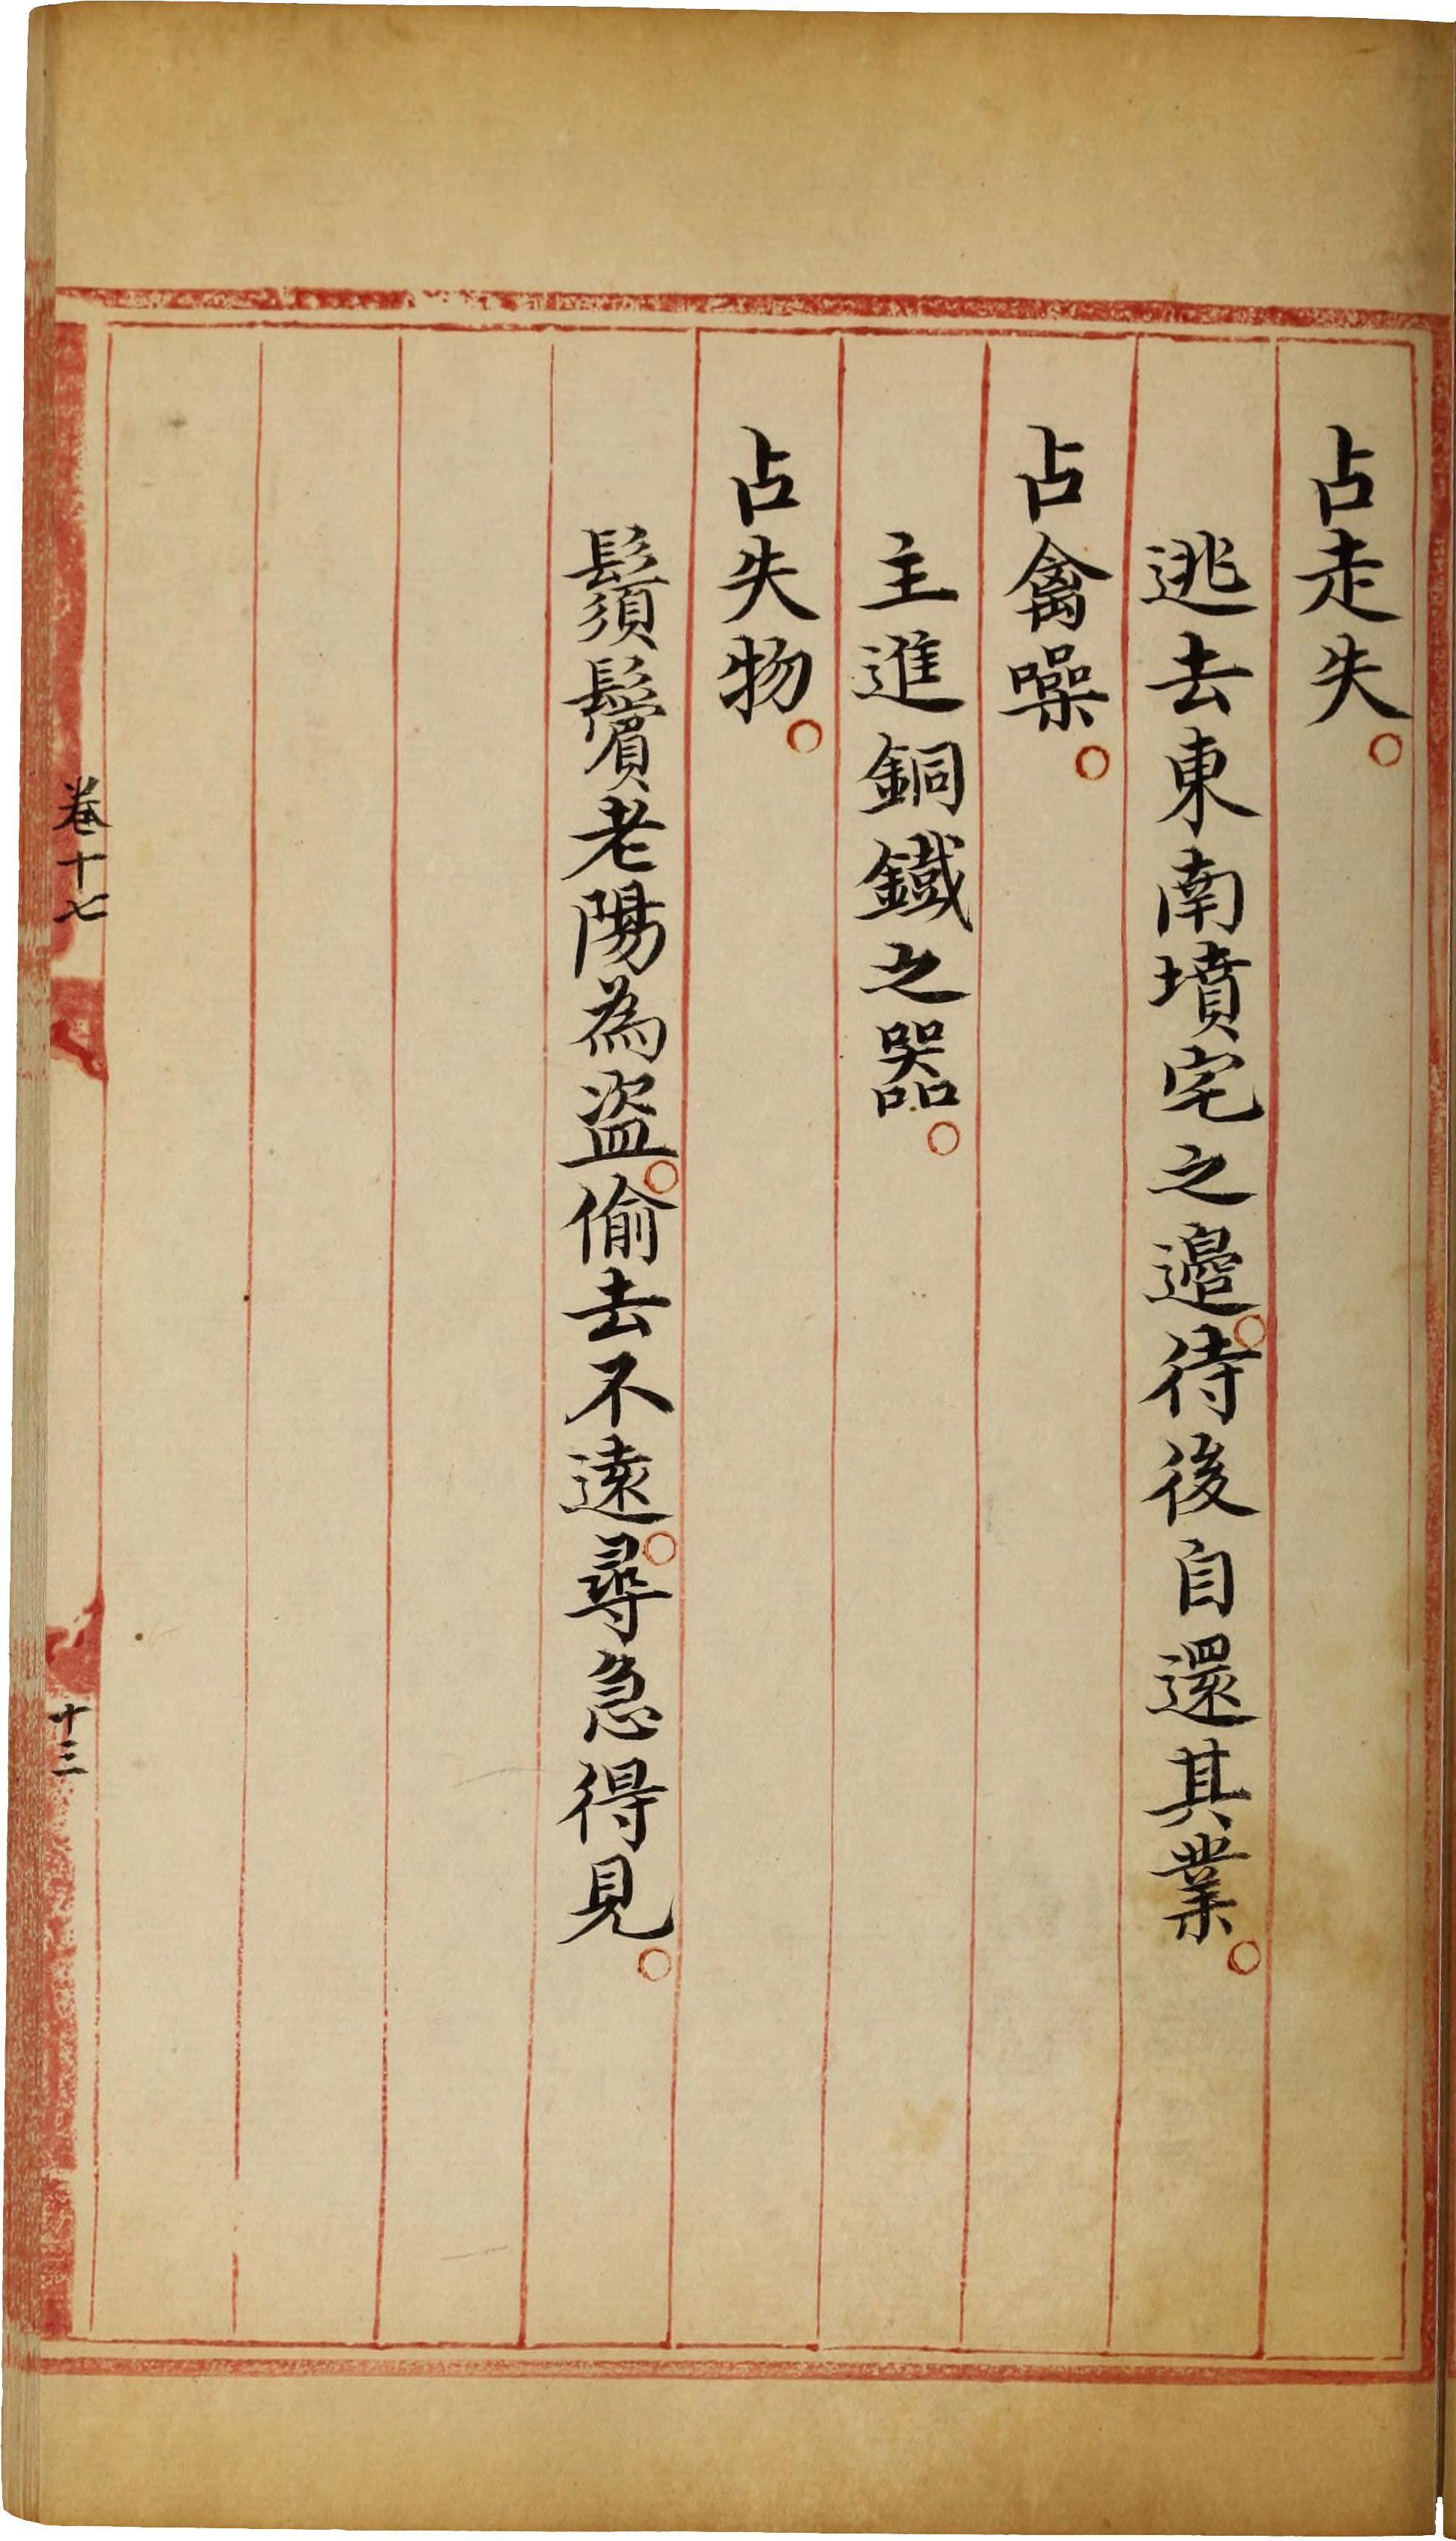 占走失。
逃去東南墳宅之邊。待後自還其業。
占禽噪。
主進銅鐵之器。
占失物。
鬚鬢老陽為盜。偷去不遠。尋急得見。
卷十七
十三